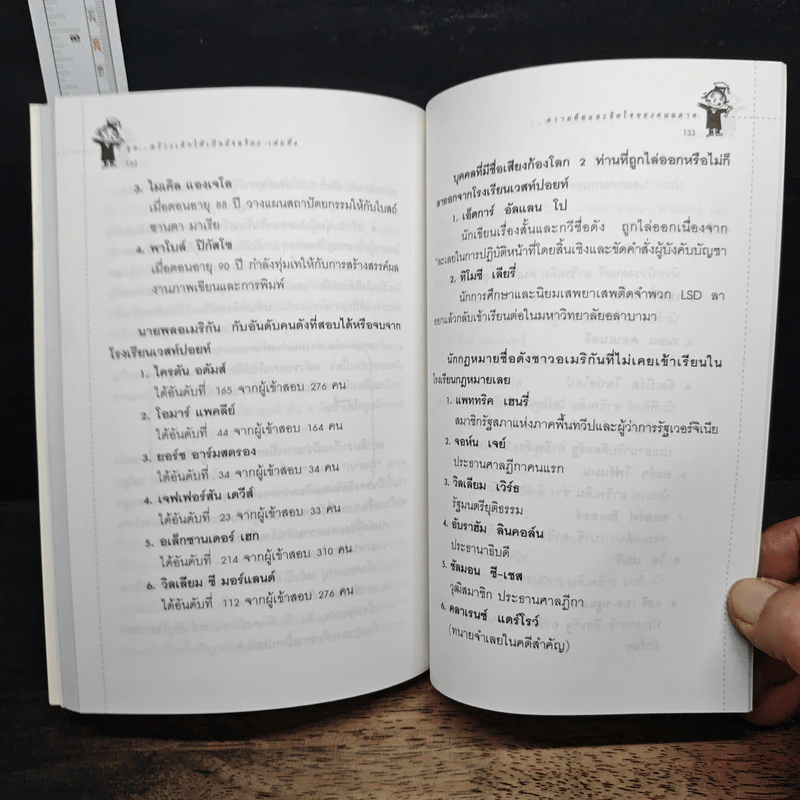 132
3. ไมเคิล แองเจโล
เมื่อตอนอายุ 88 ปี วางแผนสถาปัตยกรรมให้กับโบสถ์
ซานตา มาเรีย
4. พาโบล์ ปิกัสโซ
เมื่อตอนอายุ 90 ปี กำลังทุ่มเทให้กับการสร้างสรรค์ผล
งานภาพเขียนและการพิมพ์
นายพลอเมริกัน กับอันดับคนดังที่สอบได้หรือจบจาก
โรงเรียนเวสท์ปอยท์
1. ไครตัน อดัมส์
ได้อันดับที่ 165 จากผู้เข้าสอบ 276 คน
2. โอมาร์ แพคลีย์
ได้อันดับที่ 44 จากผู้เข้าสอบ 164 คน
3. ยอร์ช อาร์มสตรอง
ได้อันดับที่ 34 จากผู้เข้าสอบ 34 คน
4. เจฟเฟอร์สัน เดวีส์
ได้อันดับที่ 23 จากผู้เข้าสอบ 33 คน
5. อเล็กซานเดอร์ เฮก
ได้อันดับที่ 214 จากผู้เข้าสอบ 310 คน
6. วิลเลียม ซี มอร์แลนด์
ได้อันดับที่ 112 จากผู้เข้าสอบ 276 คน
ความคิดและจิตใจของคนฉลาด
133
บุคคลที่มีชื่อเสียงก้องโลก 2 ท่านที่ถูกไล่ออกหรือไม่ก็
ลาออกจากโรงเรียนเวสท์ปอยท์
1. เอ็ดการ์ อัลแลน โป
นักเขียนเรื่องสั้นและกวีชื่อดัง ถูกไล่ออกเนื่องจาก
"ละเลยในการปฏิบัติหน้าที่โดยสิ้นเชิงและขัดคำสั่งผู้บังคับบัญชา
2. ทิโมธี เลียรี่
นักการศึกษาและนิยมเสพยาเสพติดจำพวก LSD ลา
ออกแล้วกลับเข้าเรียนต่อในมหาวิทยาลัยอลาบามา
นักกฎหมายชื่อดังชาวอเมริกันที่ไม่เคยเข้าเรียนใน
โรงเรียนกฎหมายเลย
1. แพททริค เฮนรี่
สมาชิกรัฐสภาแห่งภาคพื้นทวีปและผู้ว่าการรัฐเวอร์จิเนีย
2. จอห์น เจย์
ประธานศาลฎีกาคนแรก
3. วิลเลียม เวิร์ธ
รัฐมนตรียุติธรรม
4. อับราฮัม ลินคอล์น
ประธานาธิบดี
5. ซัลมอน ซี-เชส
วุฒิสมาชิก ประธานศาลฎีกา
6. คลาเรนซ์ แดร์โรว์
(ทนายจำเลยในคดีสำคัญ)